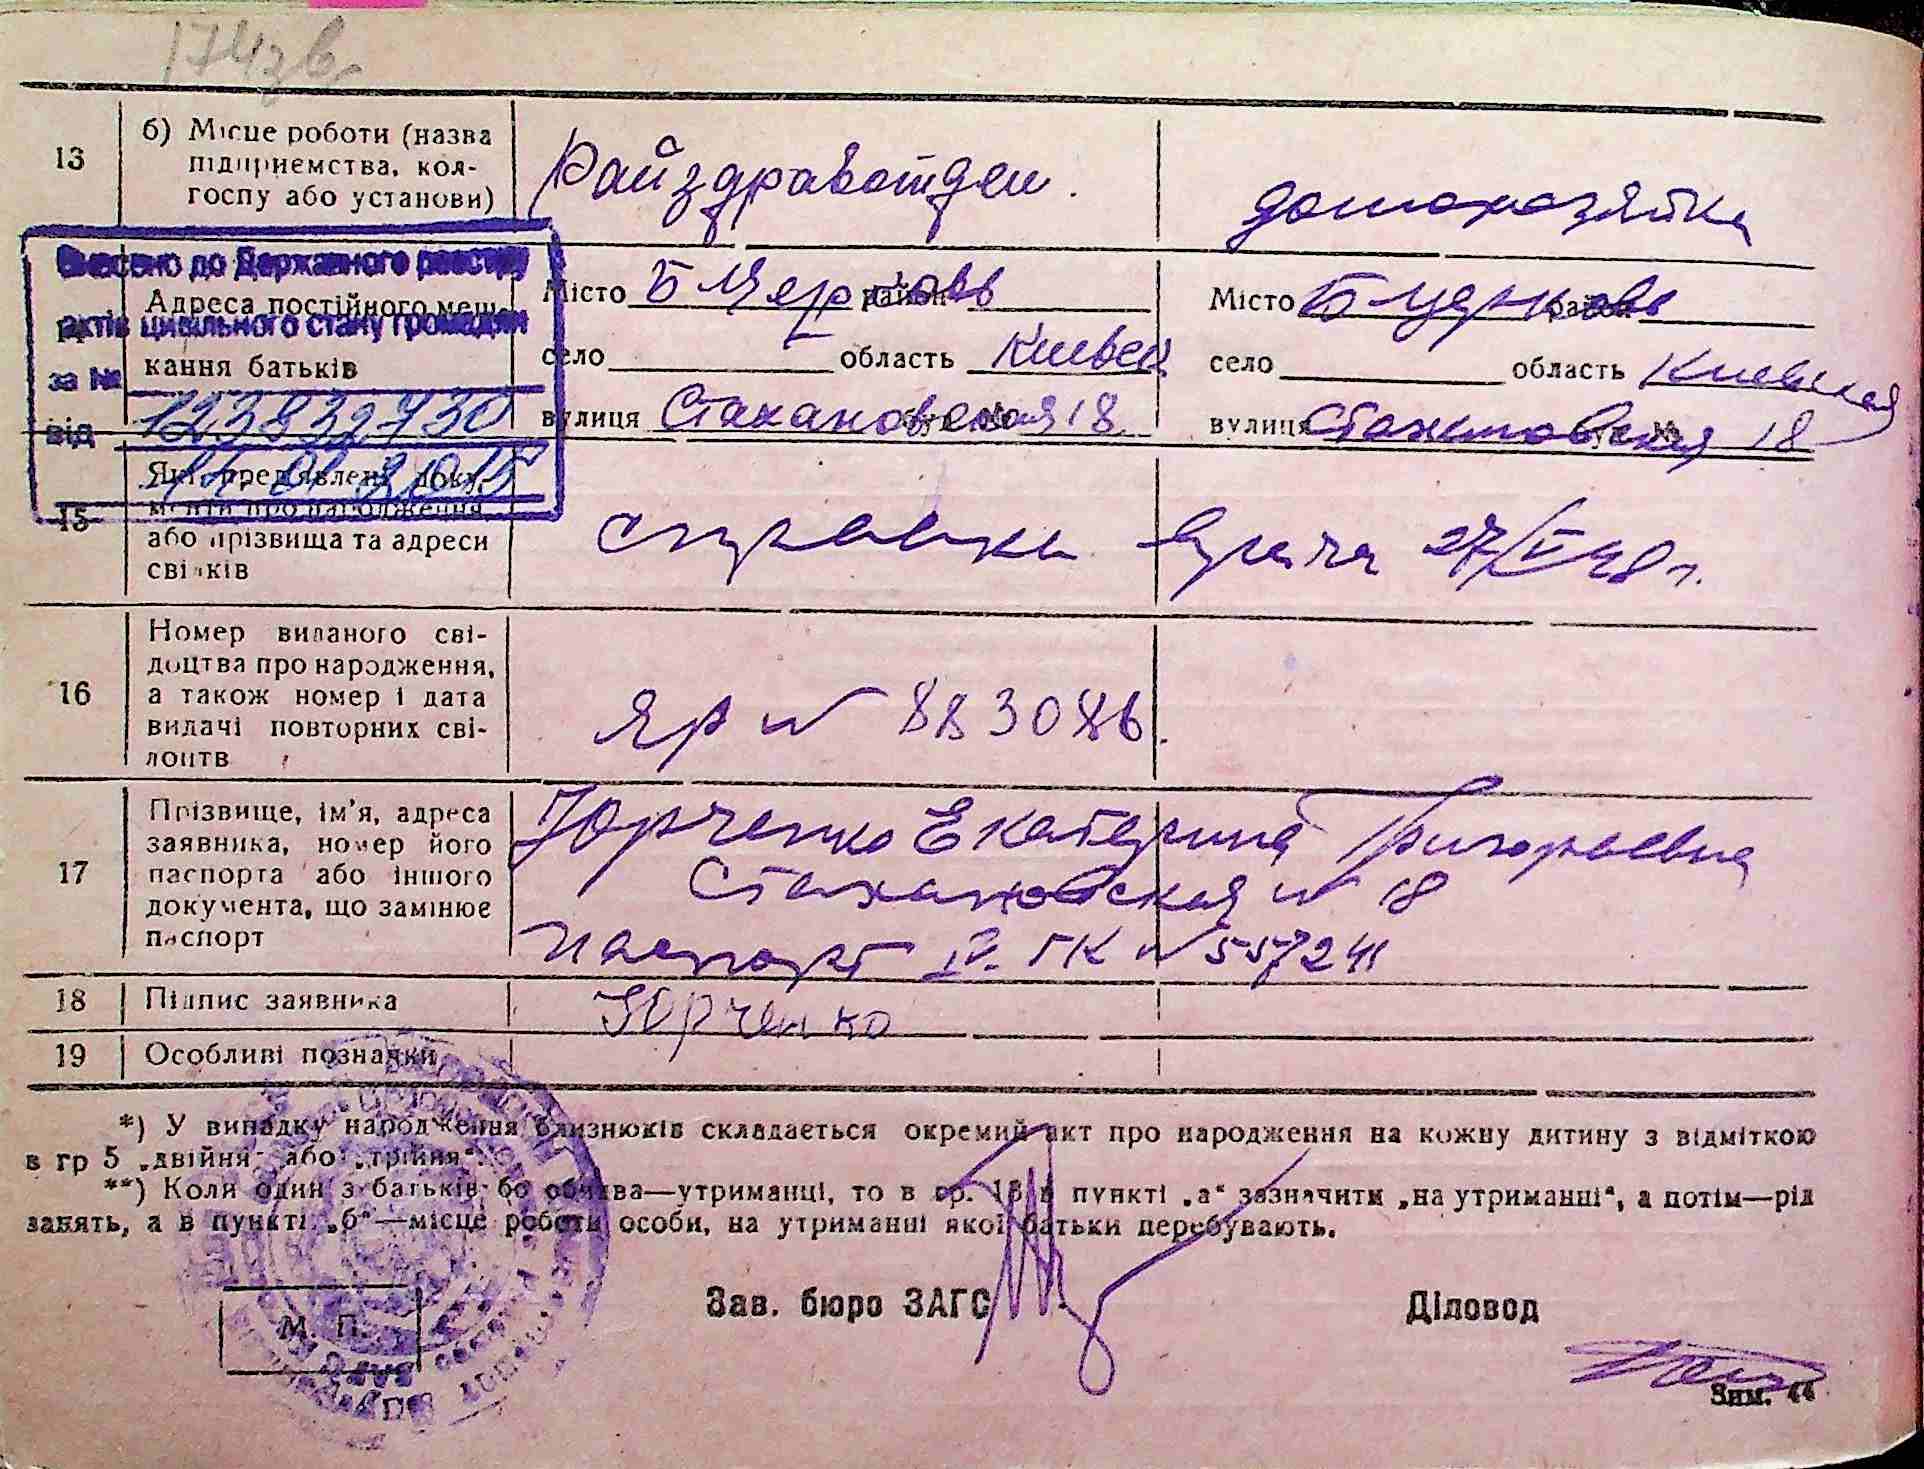 174зв.
13
б) Місце роботи (назва
підприємства, кол-
госпу або установи)
Райздравотдел.
домохозяйка
Внесено до Державного реєстру
актів цивільного стану громадян
за №
123832730
від
Адреса постійного меш-
кання батьків
Місто Б Церковь район
село область Киевск
вулиця Стахановская 18
Місто Б Церковь район
село область Киевская
вулиця Стахановская 18
15
Які пред'явлені доку-
менти про народження
або прізвища та адреси
свідків
справка врача 27/V 48 г.
16
Номер виданого сві-
доцтва про народження,
а також номер і дата
видачі повторних сві-
доцтв
ЯР № 883086.
17
Прізвище, ім'я, адреса
заявника, номер його
паспорта або іншого
документа, що замінює
паспорт
Юрченко Екатерина Григорьевна
Стахановская № 18
паспорт IV ГК № 557241
18
Підпис заявника
Юрченко
19
Особливі познаки
*) У випадку народження близнюків складається окремий акт про народження на кожну дитину з відміткою
в гр 5 „двійня" або „трійня".
**) Коли один з батьків бо обидва—утриманці, то в гр. 13 в пункті „а" зазначити „на утриманні", а потім—рід
занять, а в пункті „б"—місце роботи особи, на утриманні якої батьки перебувають.
Зав. бюро ЗАГС
Діловод
М. П.
Зим. 44